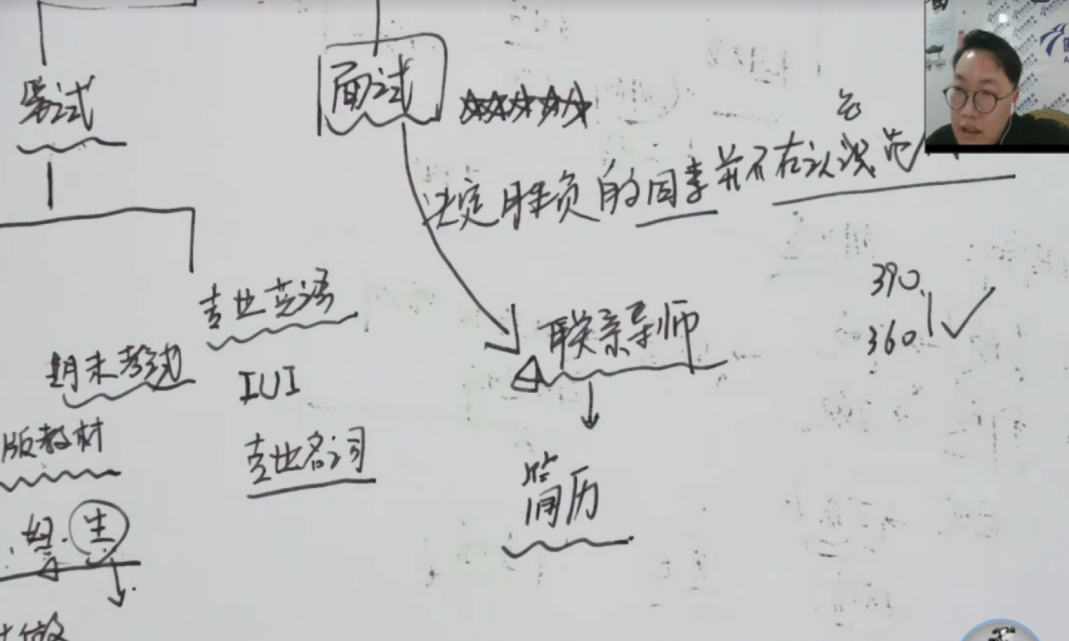 笔试
面试
决定胜负的因素并不在认识范
专业英语
390
360
联系导师
期末考试
IUI
版教材
专业名词
简历
生
做